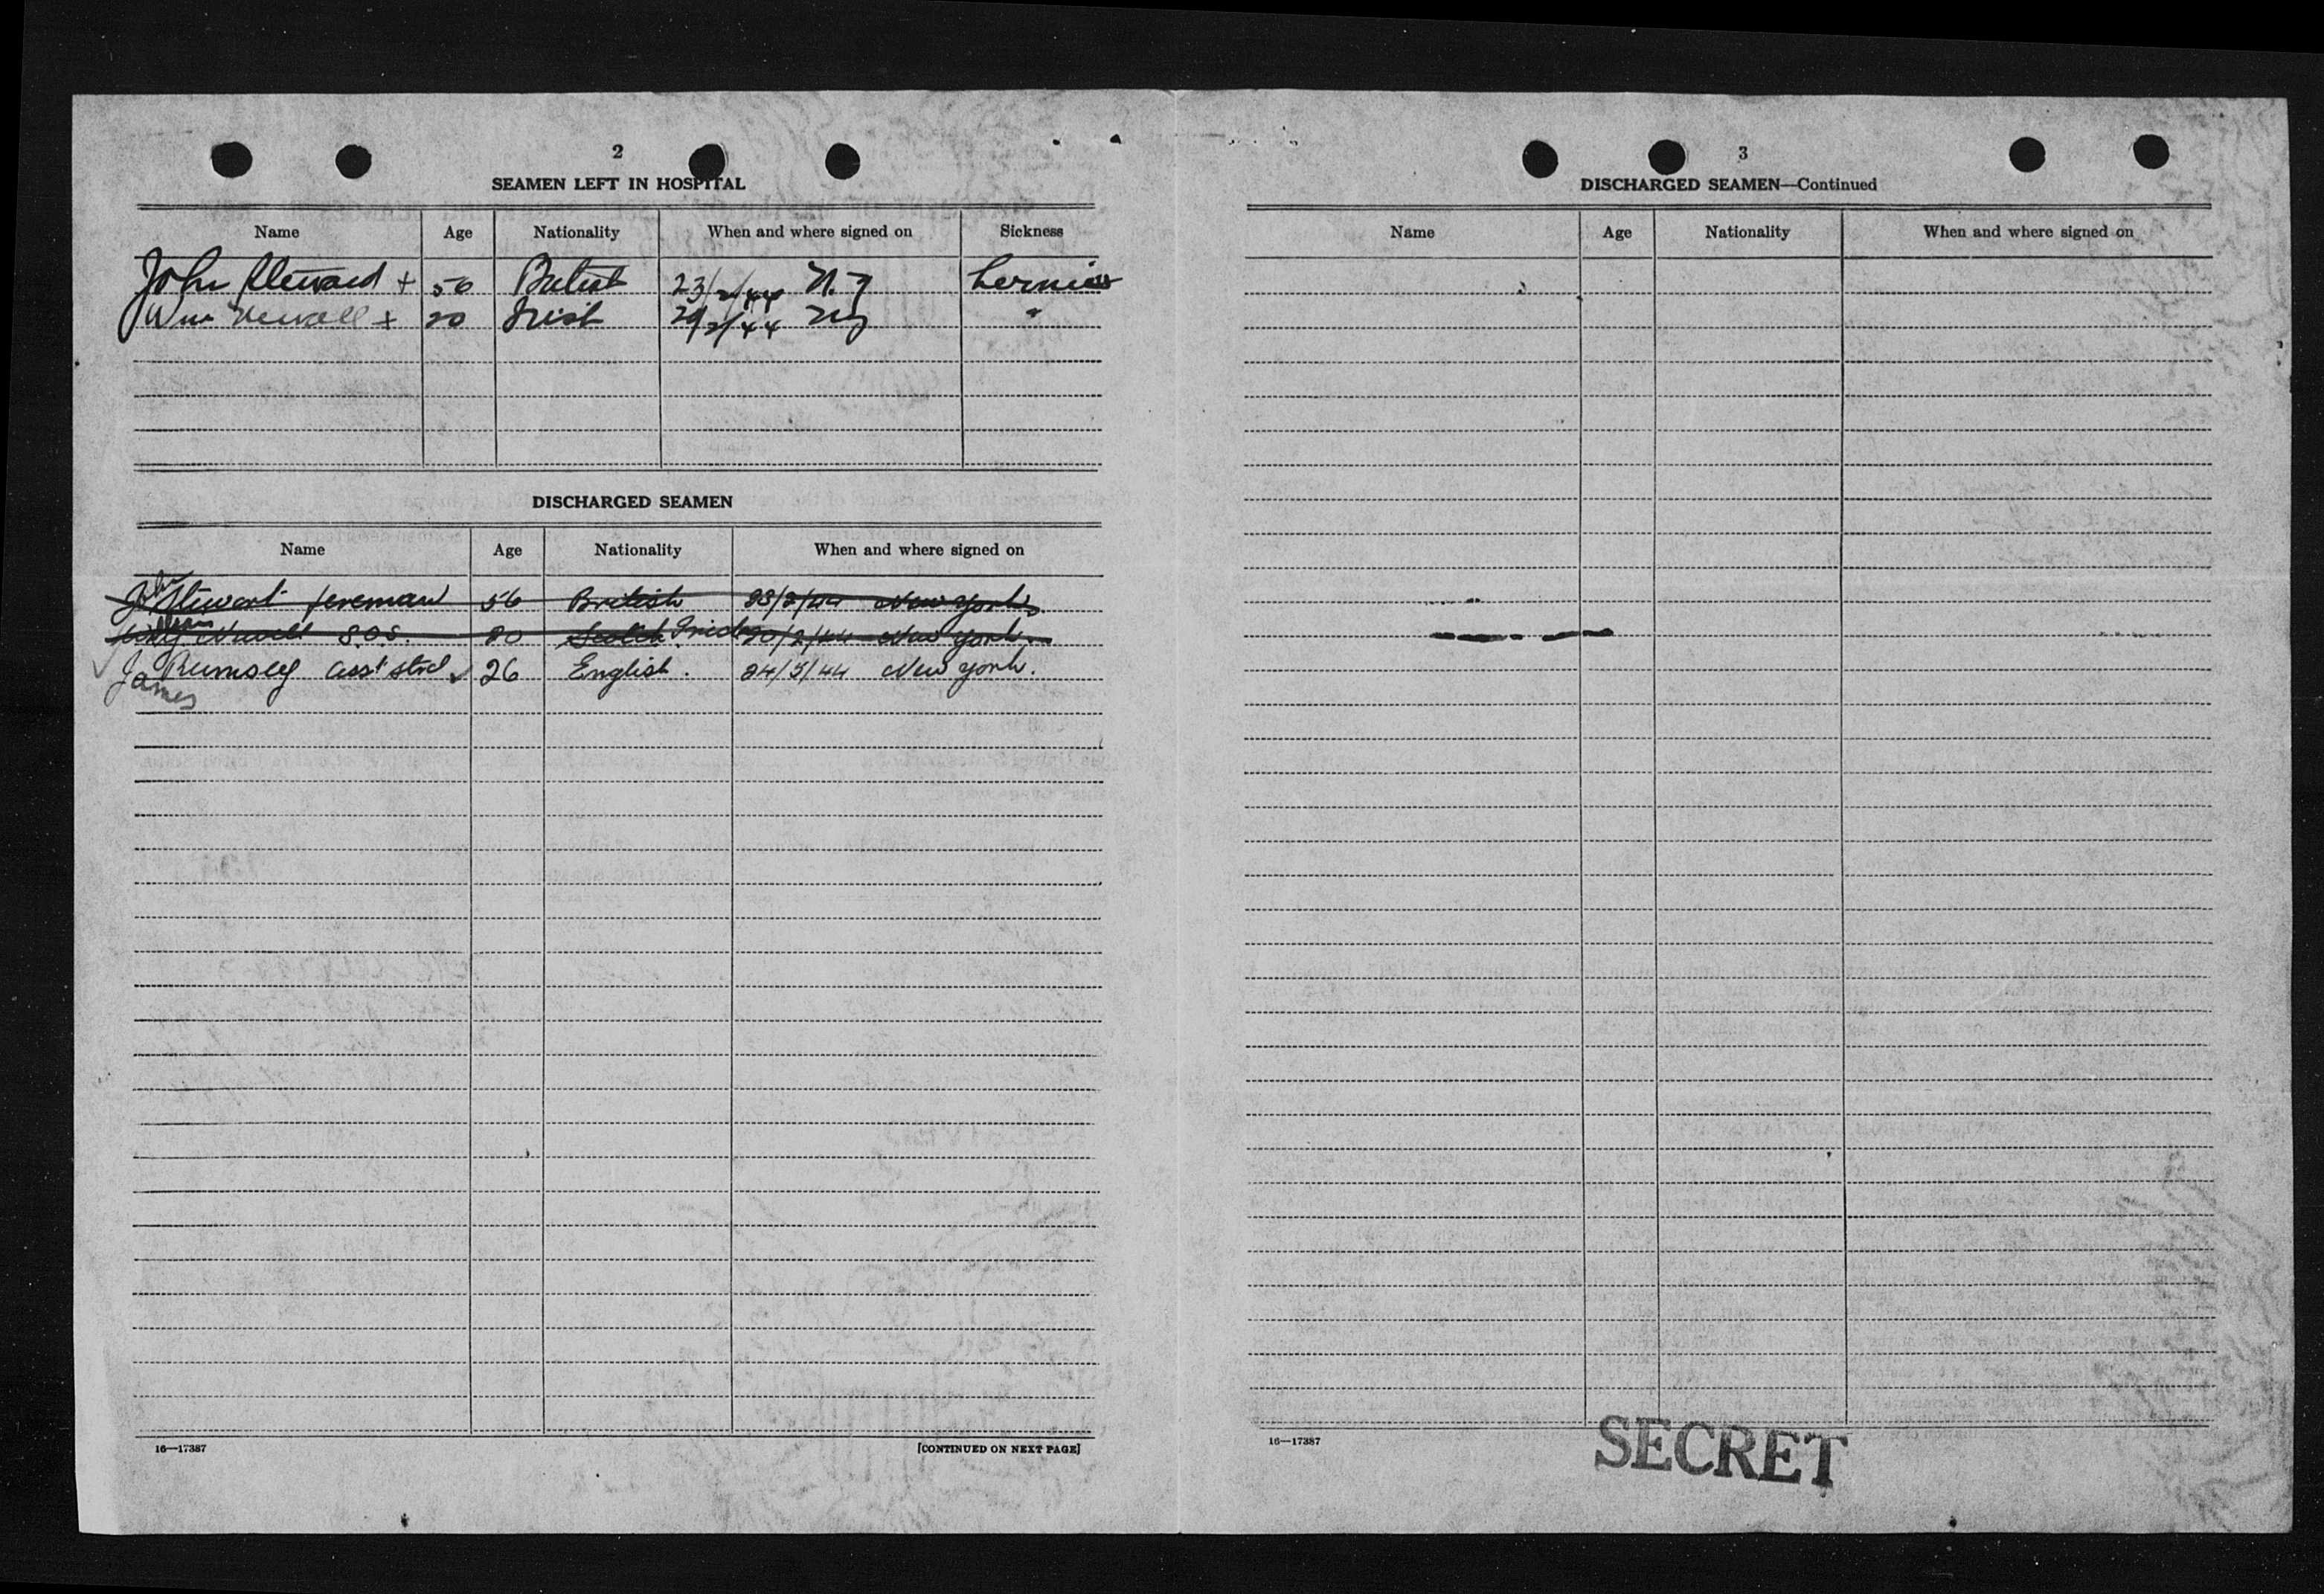 2
SEAMEN LEFT IN HOSPITAL
Name Age Nationality When and where signed on Sickness
John Steward + 56 British 23/2/44 N.Y Hernia
Wm Newall + 20 Irish 20/2/44 NY "
DISCHARGED SEAMEN
Name Age Nationality When and where signed on
John Stewart fireman 56 British 23/2/44 New York.
Newell S.O.S. 20 Scotch Irish 20/2/44 New York.
J Rumsey asst stwd 26 English. 24/5/44 New York.
James
16—17387 [CONTINUED ON NEXT PAGE]
3
DISCHARGED SEAMEN—Continued
Name Age Nationality When and where signed on
16—17387
SECRET